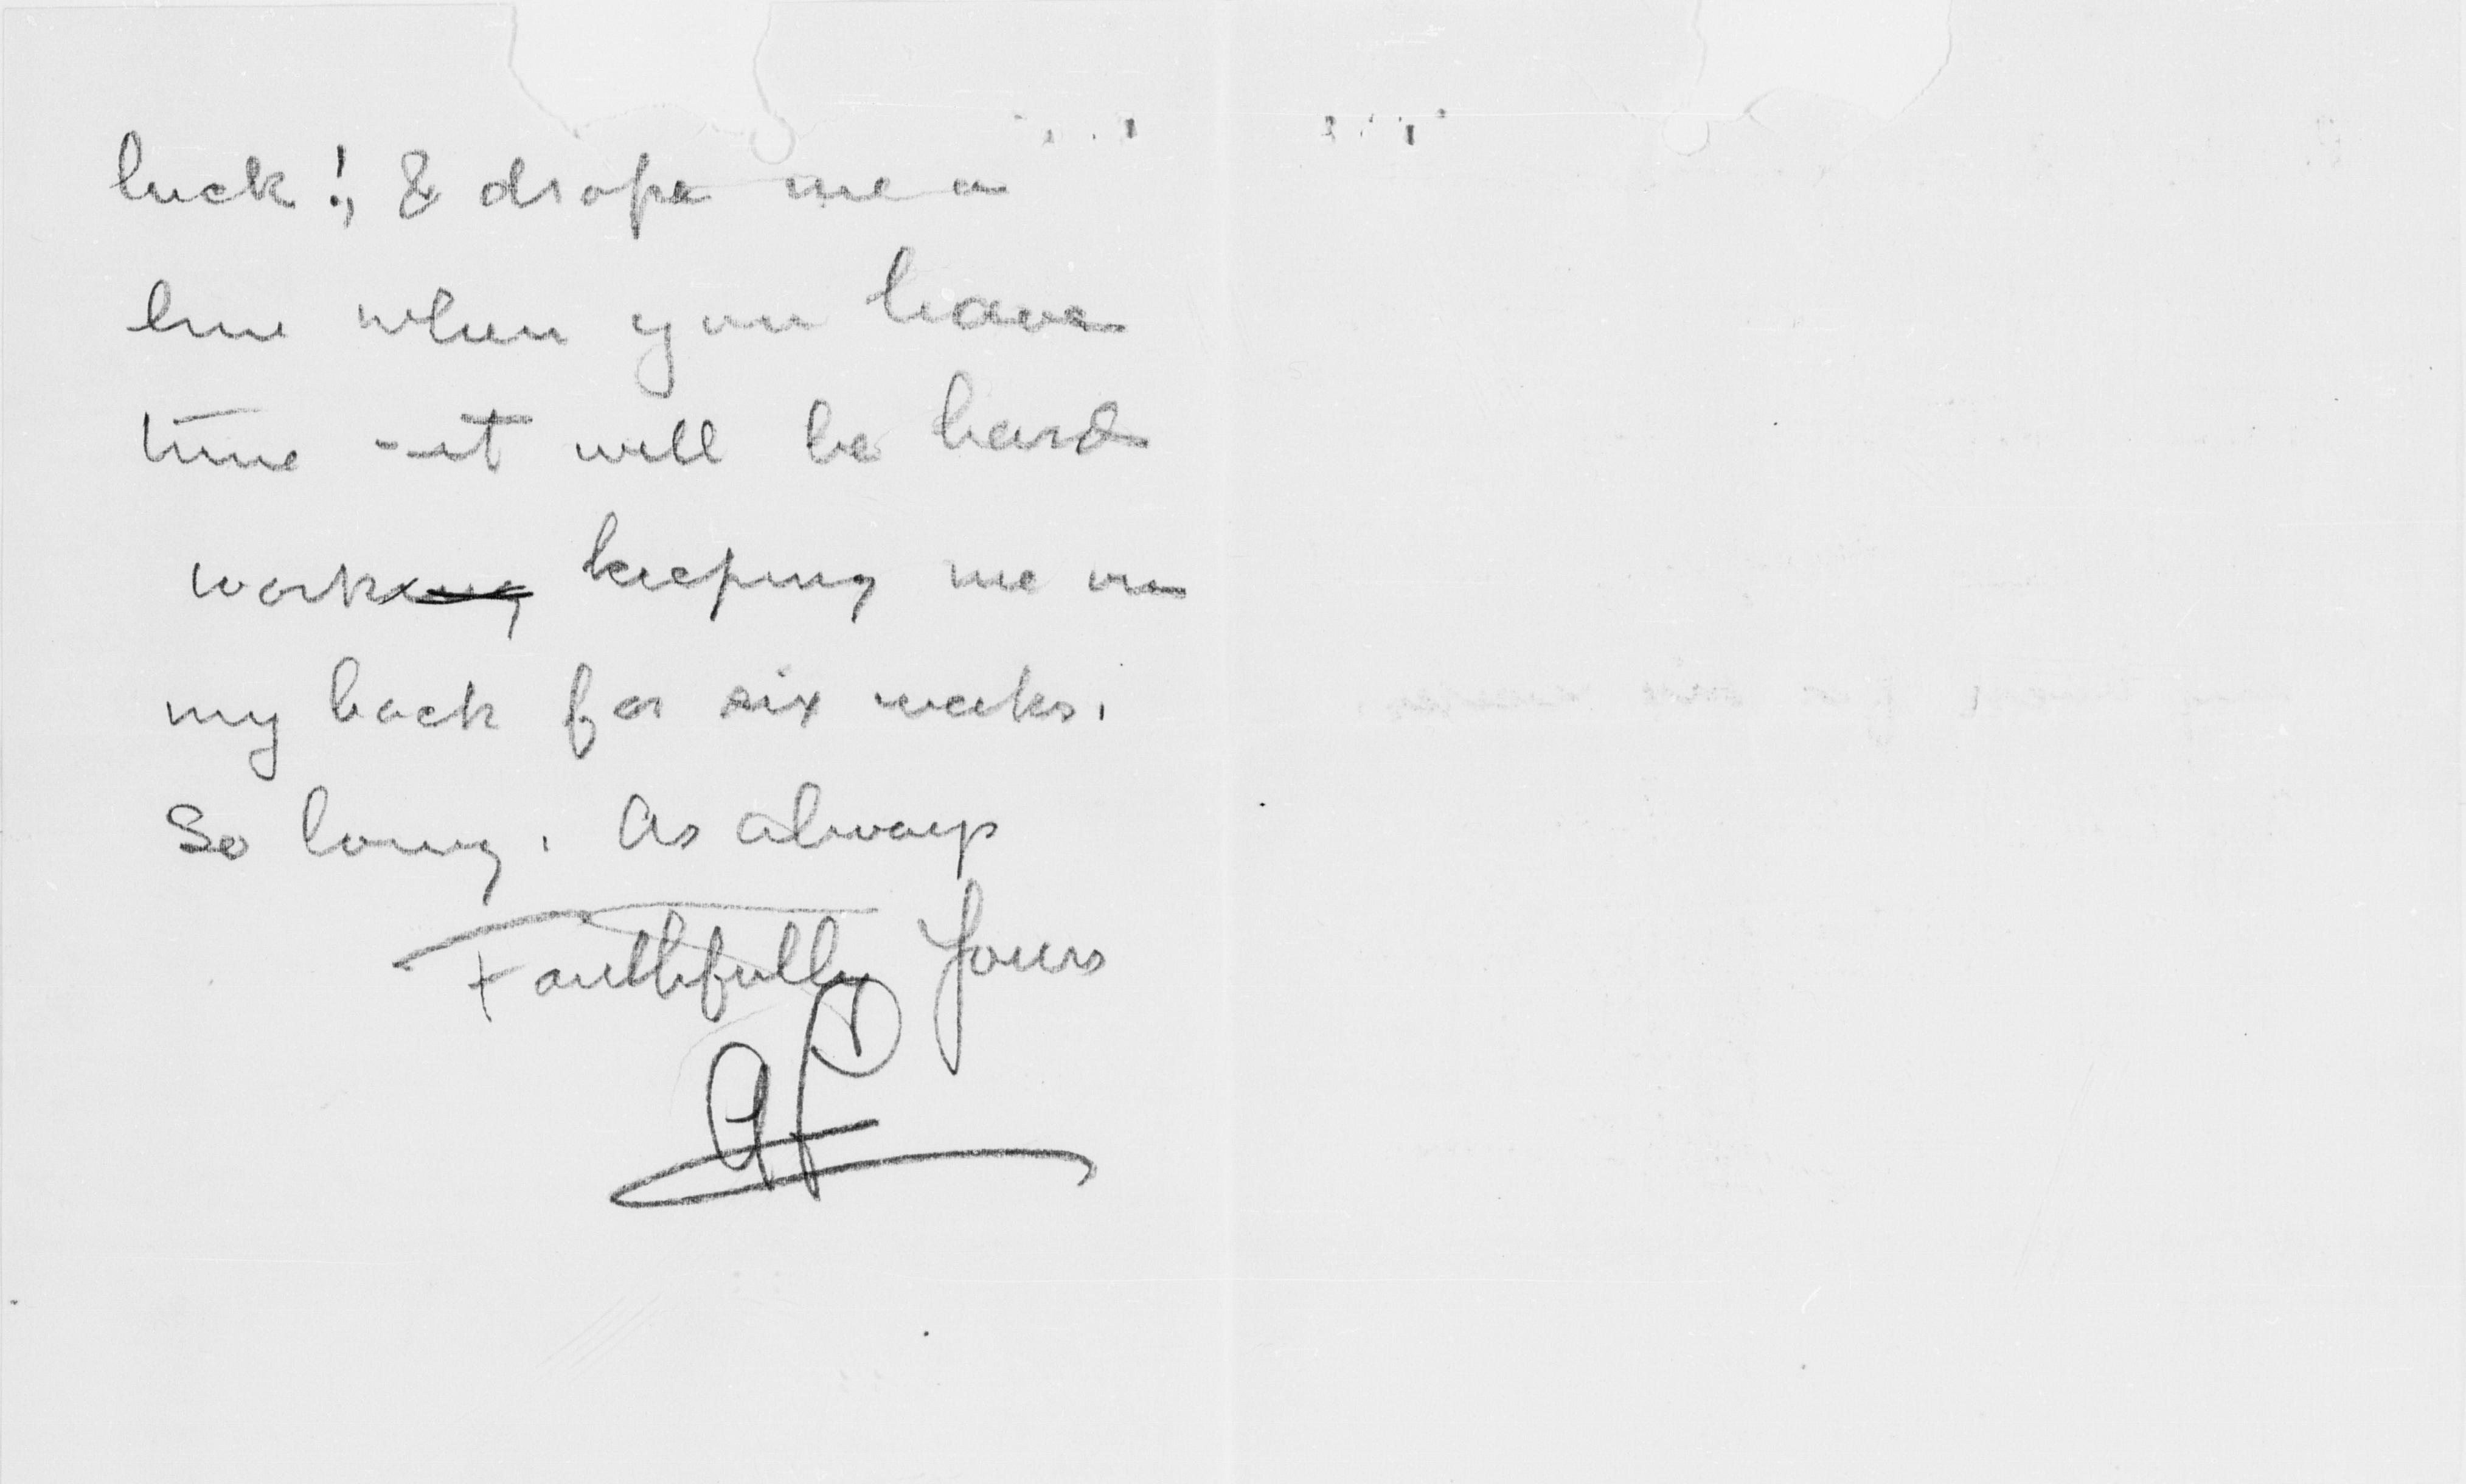 luck!, & drop me a
line when you have
time - it will be hard
work keeping me on
my back for six weeks.
So long. As always
Faithfully Yours
AF